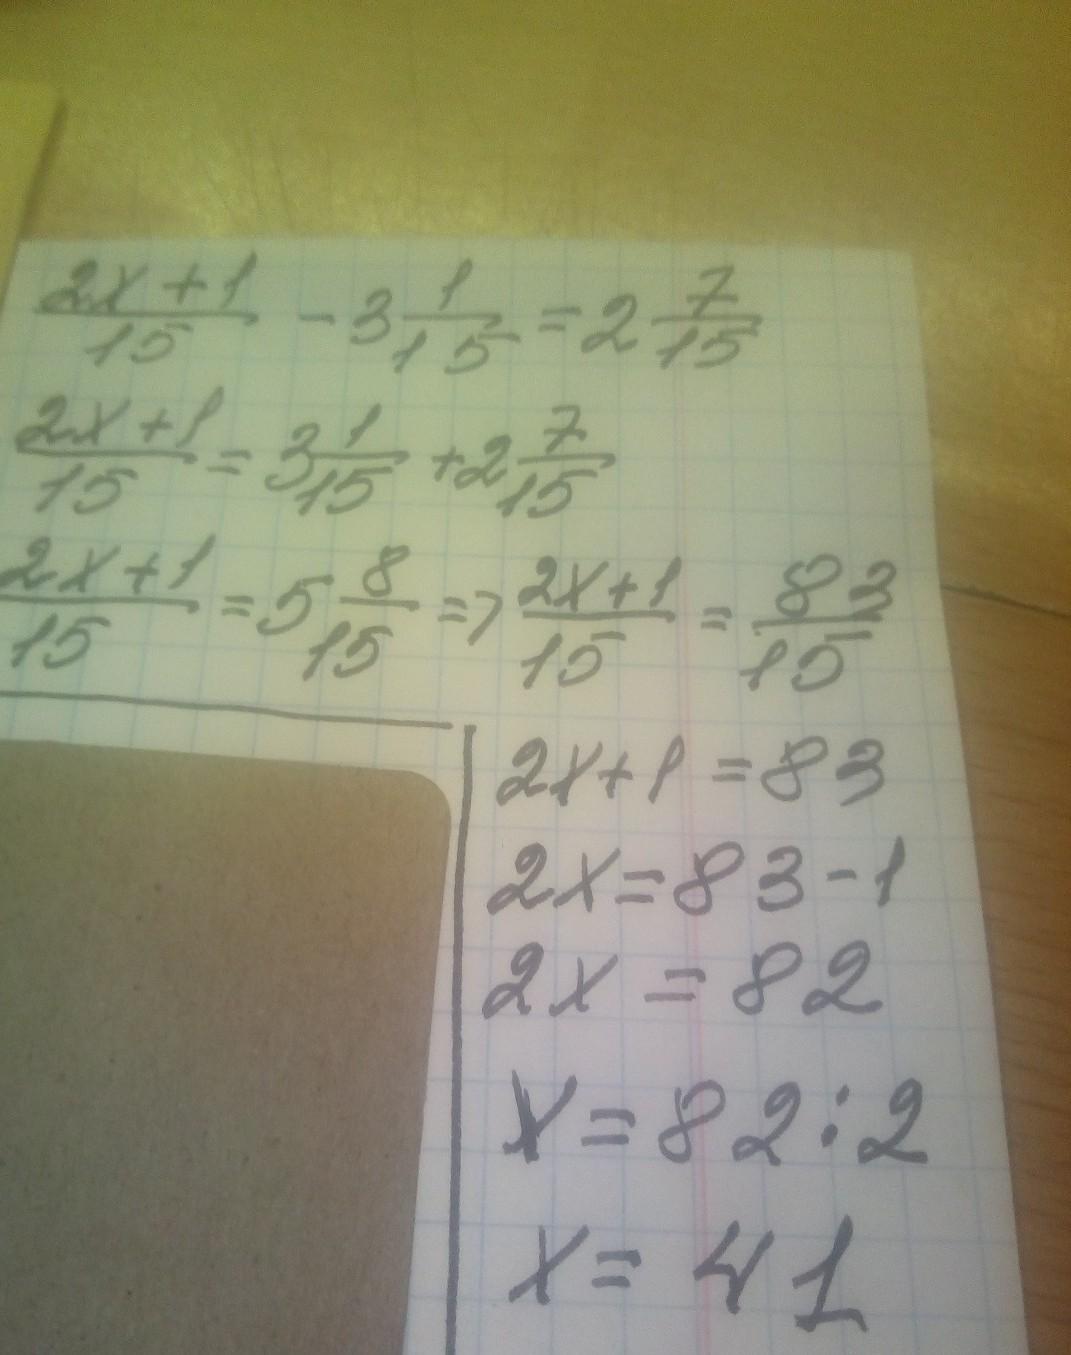 2x+1/15 - 3 1/15 = 2 7/15
2x+1/15 = 3 1/15 + 2 7/15
2x+1/15 = 5 8/15 => 2x+1/15 = 83/15
2x+1 = 83
2x = 83-1
2x = 82
x = 82:2
x = 41